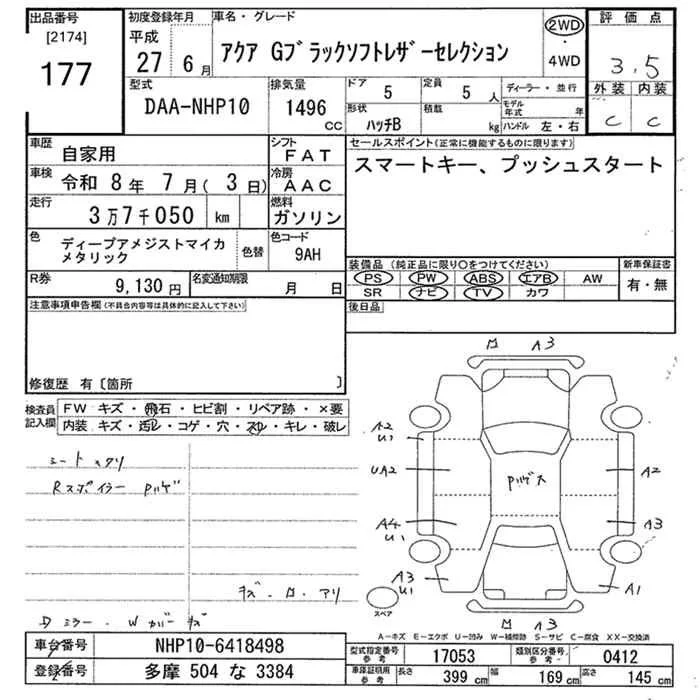 出品番号
[2174]
177
初度登録年月
平成
27 6月
車名・グレード
アクア Gブラックソフトレザーセレクション
2WD
・
4WD
評価点
3,5
外装 内装
C C
型式
DAA-NHP10
排気量
1496
CC
ドア
5
定員
5 人
形状
ハッチB
積載
kg
ディーラー・並行
モデル年式 年
ハンドル 左・右
車歴
自家用
シフト
FAT
車検
令和 8年 7月( 3日)
冷房
AAC
走行
3万7千050 km
燃料
ガソリン
色
ディープアメジストマイカ
メタリック
色替
色コード
9AH
R券
9,130円
名変通知期限
月 日
セールスポイント(正常に機能するものに限ります)
スマートキー、プッシュスタート
装備品(純正品に限り〇をつけてください)
PS PW ABS エアB AW
SR ナビ TV カワ
新車保証書
有・無
後日品
注意事項申告欄(不具合内容等は具体的に記入して下さい)
修復歴 有〔箇所 〕
検査員
記入欄
FW キズ・飛石・ヒビ割・リペア跡・×要
内装 キズ・汚レ・コゲ・穴・スレ・キレ・破レ
シート スレ
Rスポイラー Pハゲ
キズ・ロ・アリ
Dミラー・Wカバー キズ
ロ A3
A2
U1
UA2
A4
U1
A3
U1
Pハゲ大
A2
A3
A1
ロ A3
スペア
A-キズ E-エクボ U-凹み W-補修跡 S-サビ C-腐食 XX-交換済
車台番号
NHP10-6418498
登録番号
多摩 504 な 3384
型式指定番号
参考
17053
類別区分番号
参考
0412
車庫証明用
参考
長さ
399 cm
幅
169 cm
高さ
145 cm